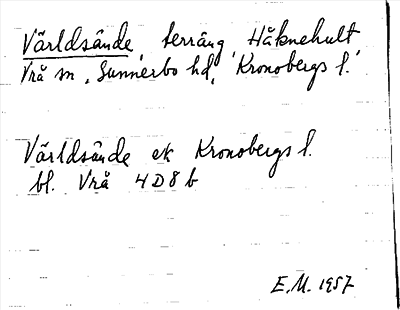 Världsände, terräng, Håknehult
Vrå sn, Sunnerbo hd, Kronobergs l.
Världsände ek Kronobergs l.
bl. Vrå 4D8b
E.M. 1957